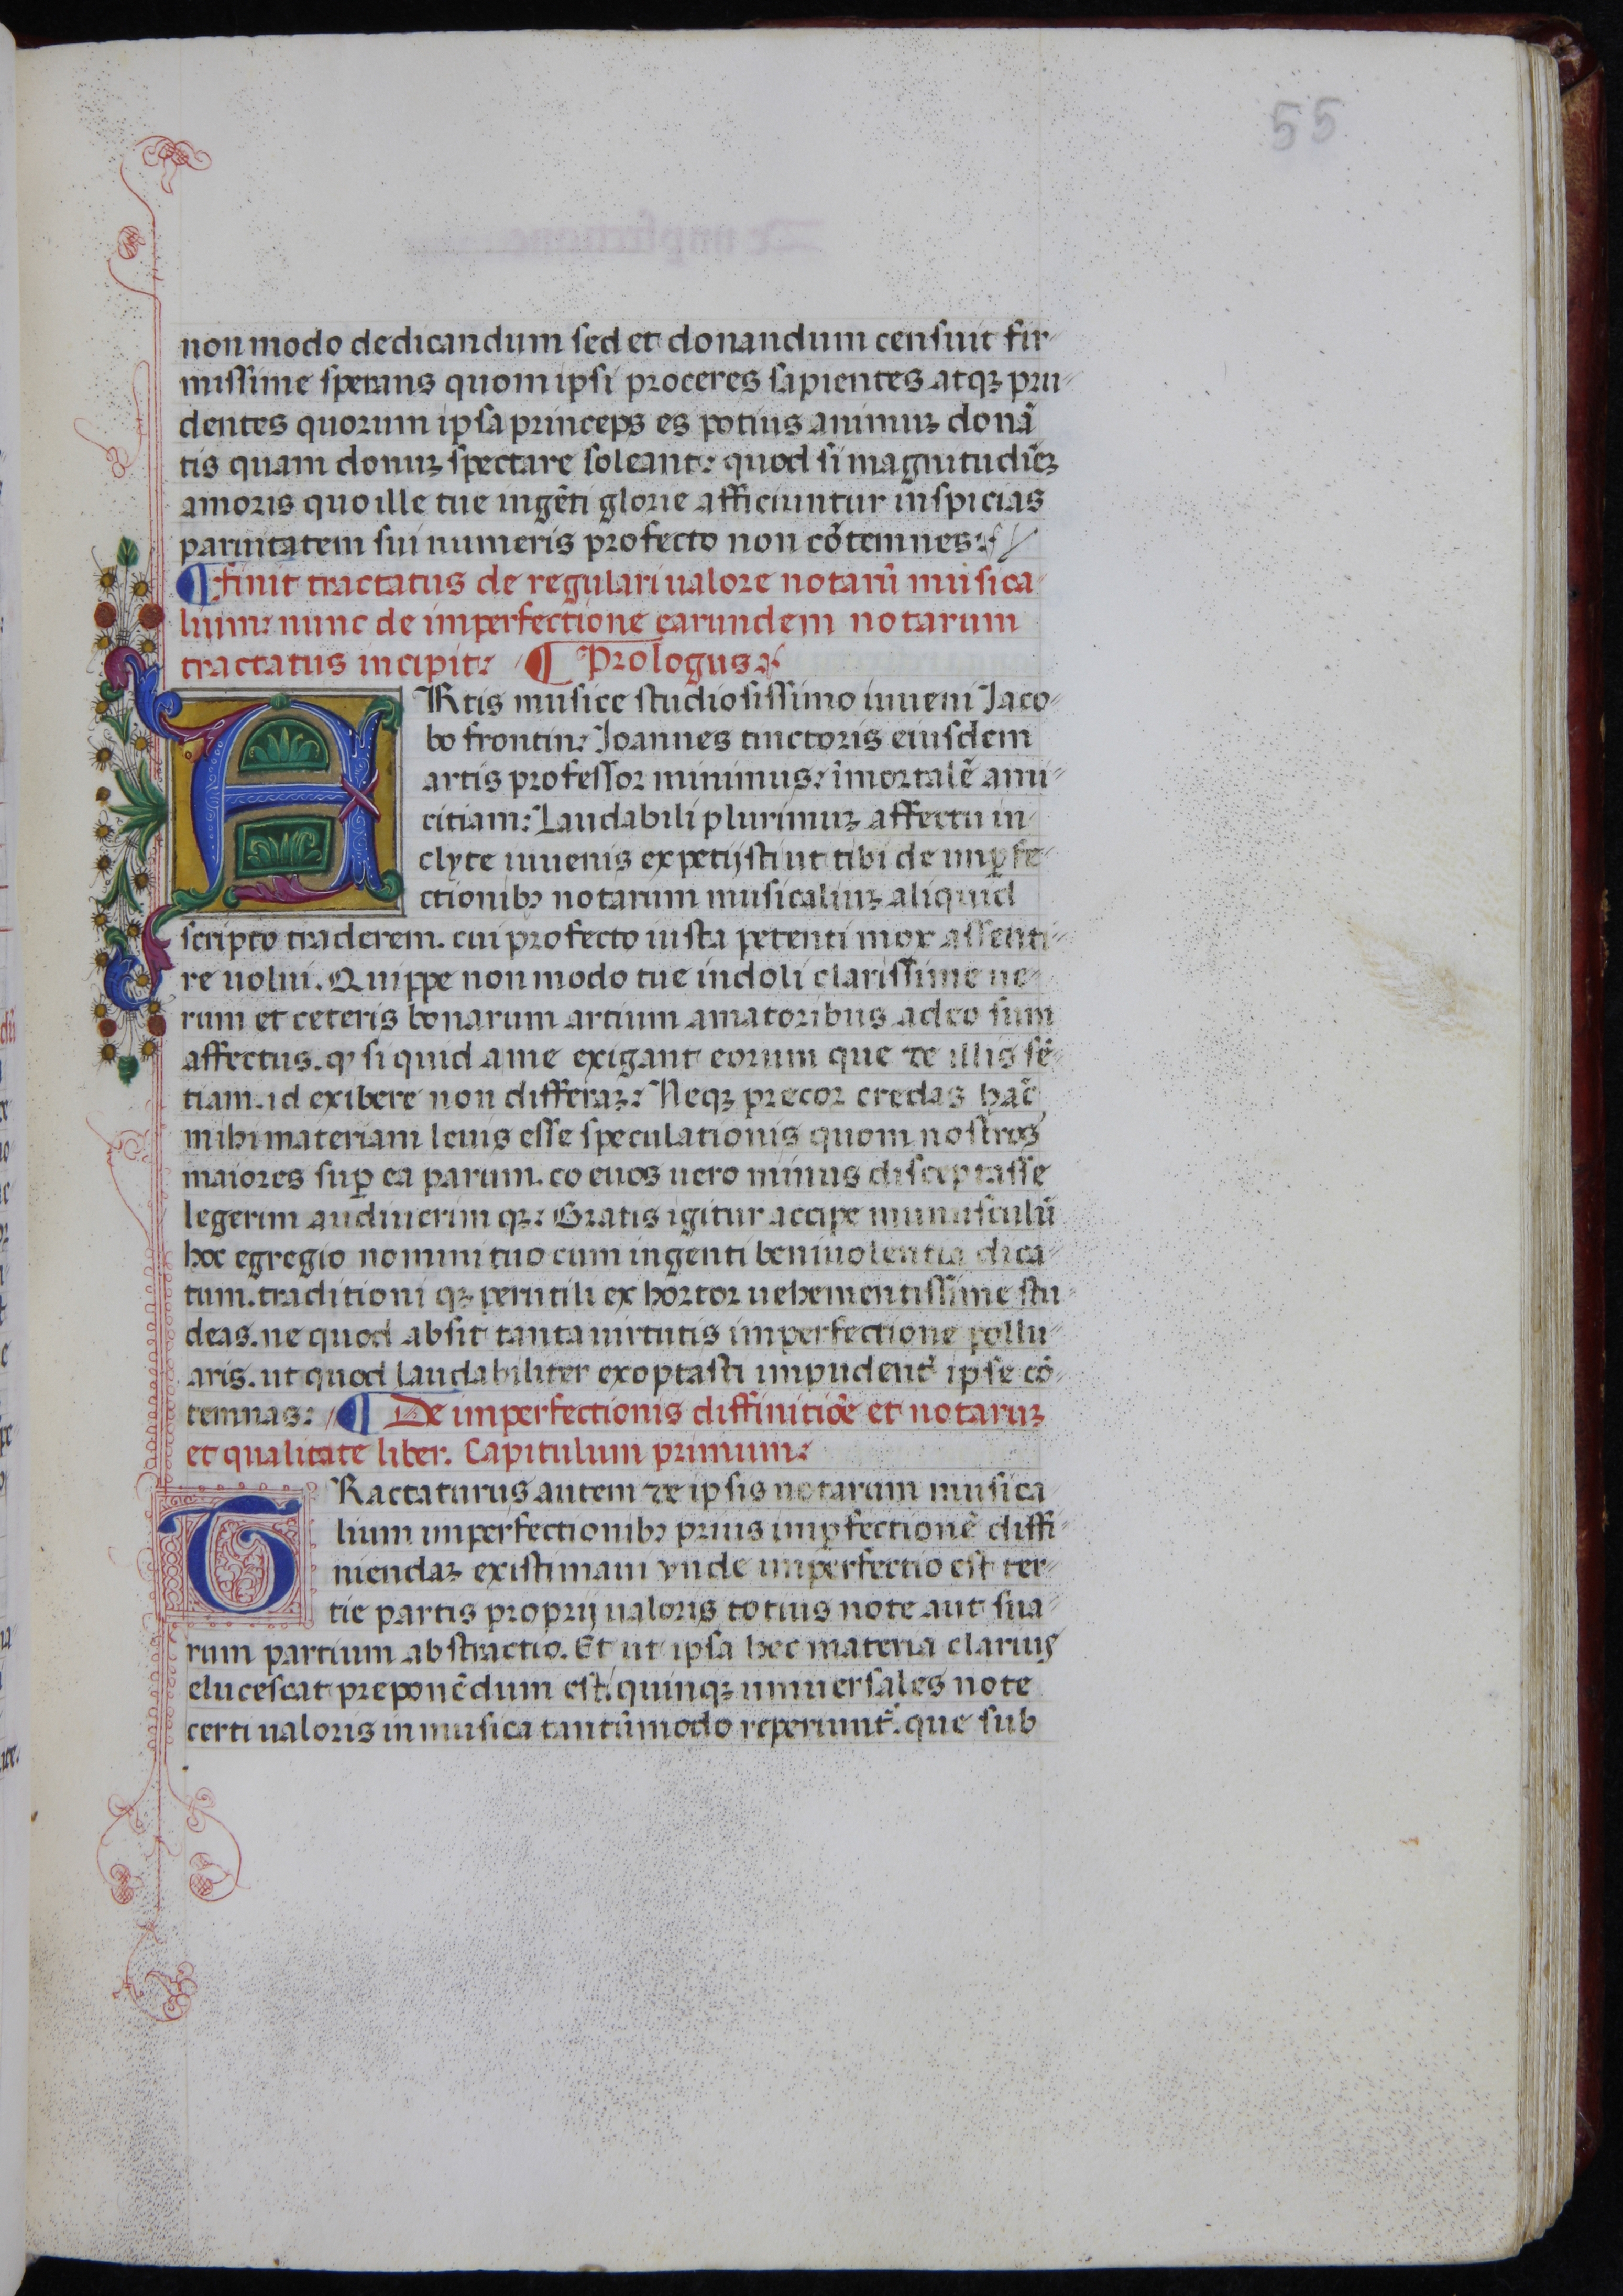 55
non modo dedicandum sed et donandum censuit fir-
missime sperans quom ipsi proceres sapientes atqꝫ pru-
dentes quorum ipsa princeps es potius animuꝫ donã
tis quam donuꝫ spectare soleant: quod si magnitudinẽꝫ
amoris quo ille tue ingẽti glorie afficiuntur inspicias
paruitatem sui numeris profecto non cõtemnes:
¶ finit tractatus de regulari ualore notarũ musica
lium: nunc de imperfectione earundem notarum
tractatus incipit: ¶ Prologus:
ARtis musice studiosissimo iuueni Jaco-
bo frontin: Joannes tinctoris eiusdem
artis professor minimus: ĩmortalẽ ami-
citiam: Laudabili plurimuꝫ affectu in
clyte iuuenis expetijsti ut tibi de imꝑfe-
ctionibꝰ notarum musicaliuꝫ aliquid
scripto traderem. cui profecto iusta petenti mox assenti-
re uolui. Quippe non modo tue indoli clarissime ue-
rum et ceteris bonarum artium amatoribus adeo sum
affectus. ꝙ si quid a me exigant eorum que de illis sẽ-
tiam. id exibere non differaꝫ: Neqꝫ precor credas hãc
mihi materiam leuis esse speculationis quom nostros
maiores suꝑ ea parum. coeuos uero minus disceptasse
legerim audiuerim qꝫ: Gratis igitur accipe munusculũ
hoc egregio nomini tuo cum ingenti beniuolentia dica-
tum. traditioni qꝫ perutili exhortor uehementissime stu-
deas. ne quod absit tanta uirtutis imperfectione pollu-
aris. ut quod laudabiliter exoptasti impudent᷑ ipse cõ-
temnas: ¶ De imperfectionis diffinitiõe et notaruꝫ
et qualitate liber. Capitulum primum:
TRactaturus autem de ipsis notarum musica
lium imperfectionibꝰ prius imꝑfectionẽ diffi-
niendaꝫ existimaui vnde imperfectio est ter-
tie partis proprij ualoris totius note aut sua-
rum partium abstractio. Et ut ipsa hec materia clarius
elucescat preponẽdum est. quinqꝫ uniuersales note
certi ualoris in musica tantũmodo reperiunt᷑. que sub